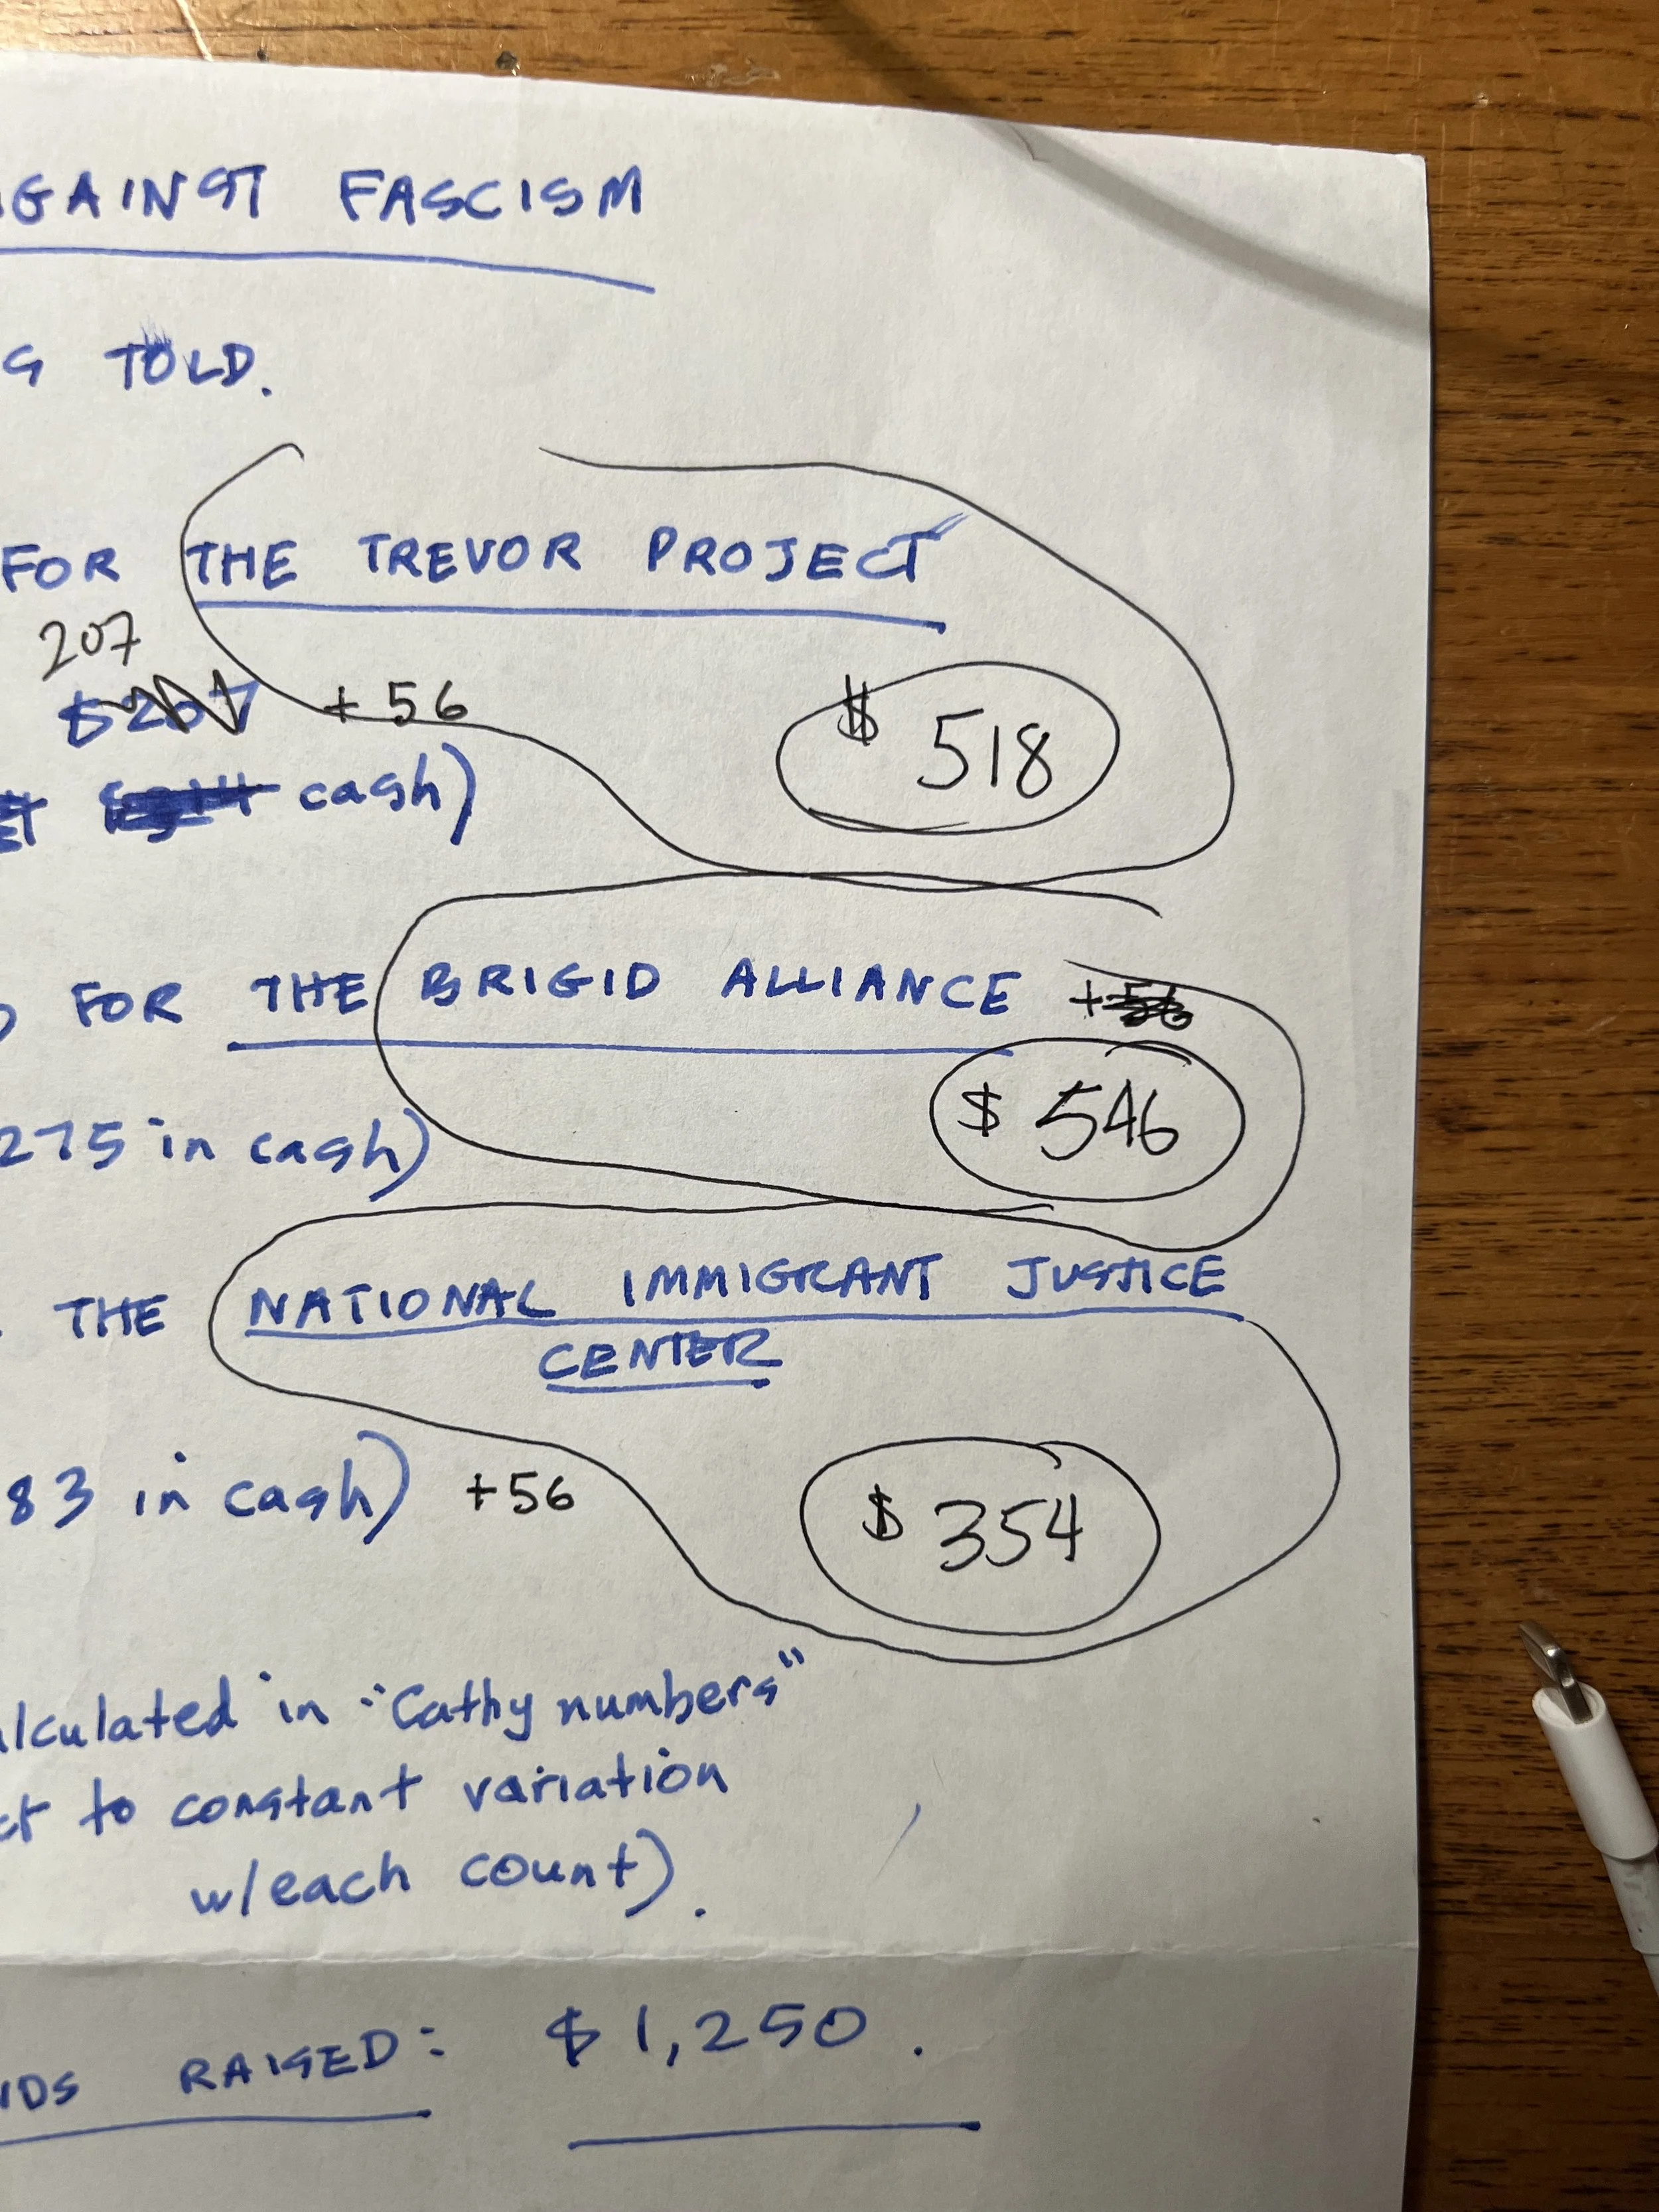 AGAINST FASCISM
TOLD.
FOR THE TREVOR PROJECT
207
$207 + 56
$ 518
cash)
FOR THE BRIGID ALLIANCE +56
$ 546
275 in cash)
THE NATIONAL IMMIGRANT JUSTICE
CENTER
83 in cash) +56
$ 354
alculated in "Cathy numbers"
ct to constant variation
w/each count).
NDS RAISED: $1,250.